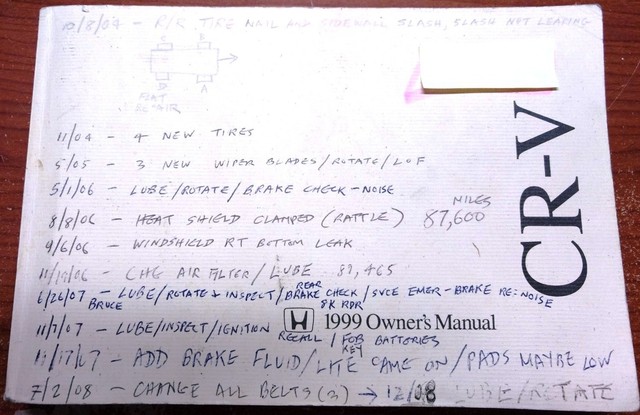 10/8/07 - R/R TIRE NAIL AND SIDEWALL SLASH, SLASH NOT LEAKING
C B
D A
FLAT
CR-V
11/04 - 4 NEW TIRES
5/05 - 3 NEW WIPER BLADES/ROTATE/LOF
5/1/06 - LUBE/ROTATE/BRAKE CHECK - NOISE
8/8/06 - HEAT SHIELD CLAMPED (RATTLE) 87,600 MILES
9/6/06 - WINDSHIELD RT BOTTOM LEAK
CHG AIR FILTER/LUBE
6/26/07 - LUBE/ROTATE + INSPECT/REAR BRAKE CHECK/SVCE EMER-BRAKE RE: NOISE
BRUCE
11/7/07 - LUBE/INSPECT/IGNITION RECALL/FOB KEY BATTERIES
1999 Owner's Manual
11/17/07 - ADD BRAKE FLUID/LITE CAME ON/PADS MAYBE LOW
7/2/08 - CHANGE ALL BELTS (3) → 12/08 LUBE/ROTATE